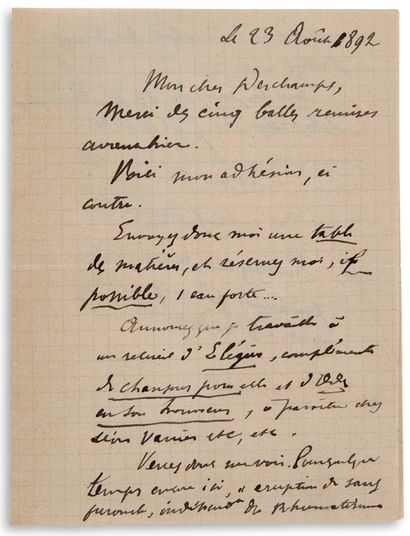 Le 23 Août 1892
Mon cher Deschamps,
Merci des cinq balles remises
avant hier.
Voici mon adhésion, ci
contre.
Envoyez donc moi une table
des matières, et réservez moi, if
possible, 1 eau forte...
Annoncez que je travaille à
un recueil d'Elégies, complément
de chansons pour elle et d'Odes
en son honneur, à paraître chez
Léon Vanier etc, etc.
Venez donc me voir. Pour quelque
temps encore ici, éruption de sang
furoncle, de Rhumatisme